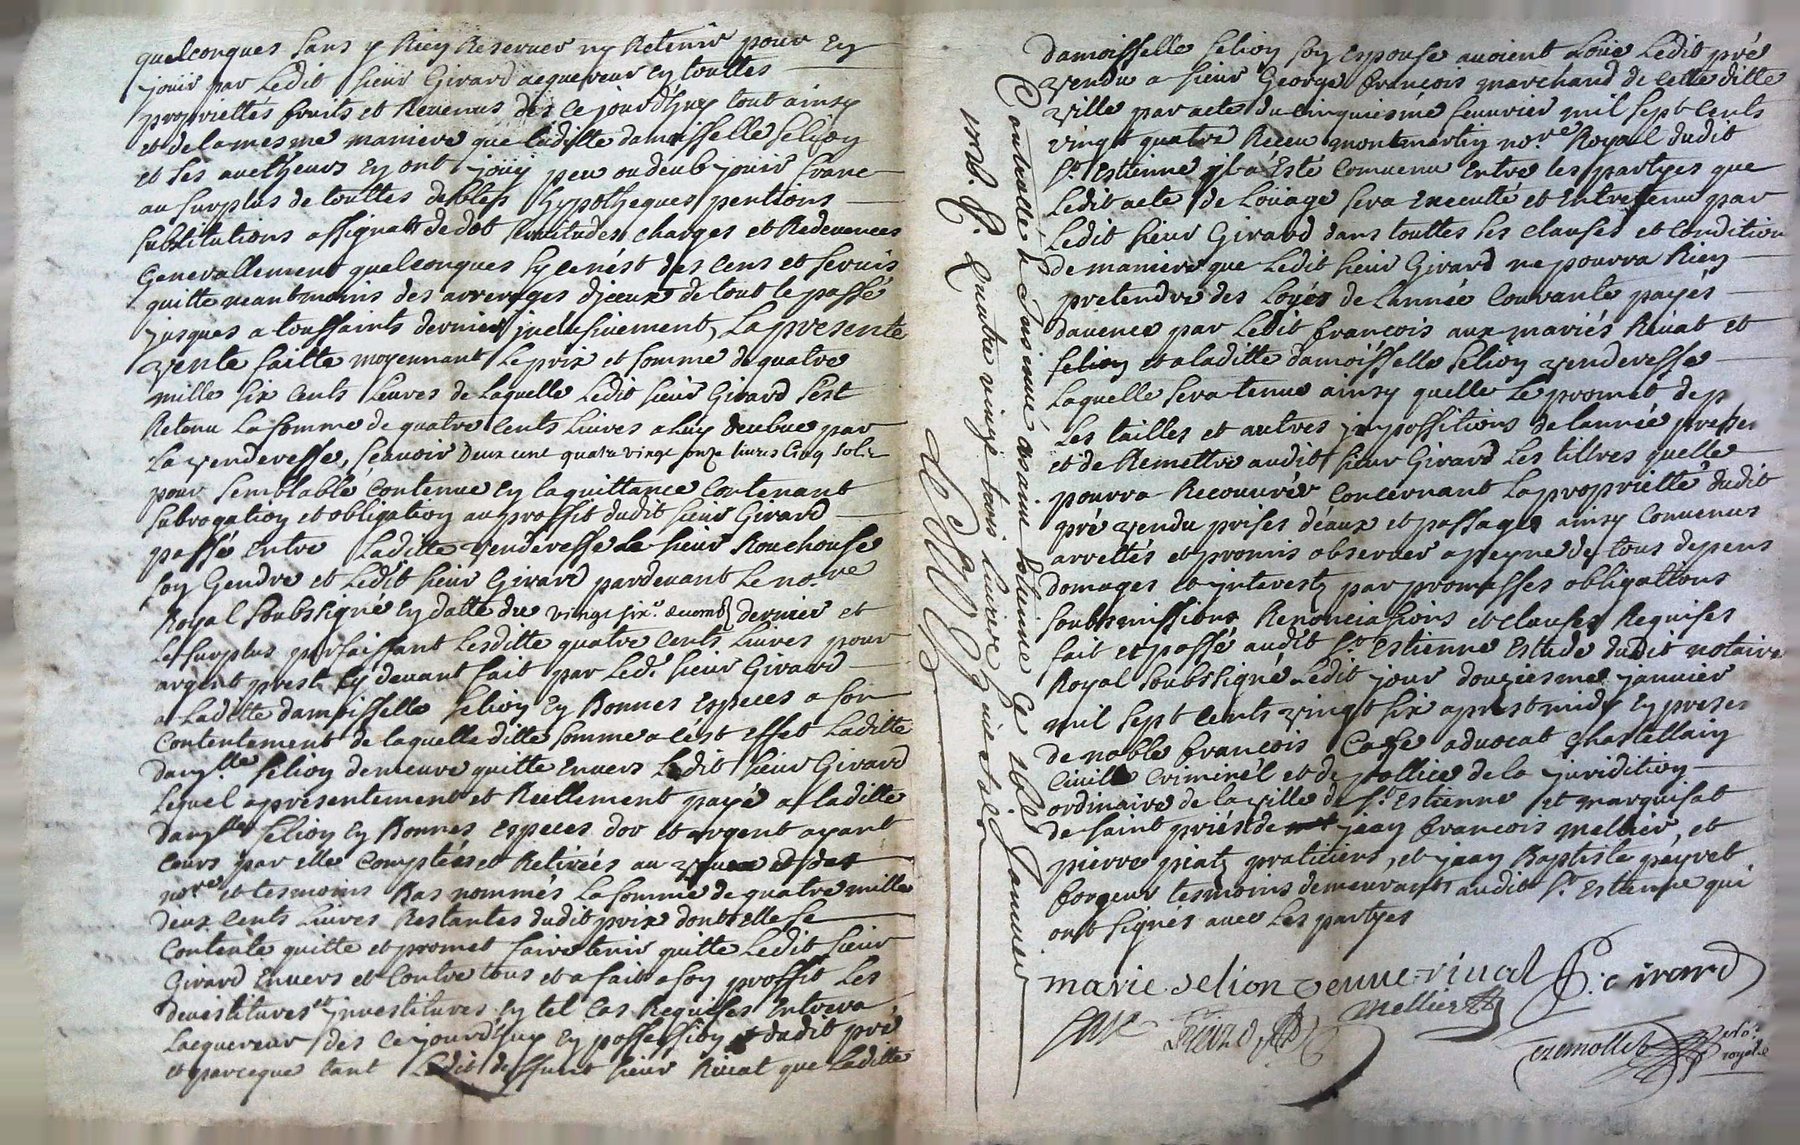 quelconques sans y Rien Reserver ny Retenir pour En
jouir par Ledit sieur Girard acquereur En touttes
propriettés fruits et Revenus des ce jourd'huy tout ainsy
et de la mesme maniere que laditte damoisselle selion
et ses autheurs En ont jouy peu ou deub jouir franc
au surplus de touttes debtes hypotheques pentions
substitutions assignatt de dot servitudes charges et Redevences
Generallement quelconques sy ce n'est des cens et servis
quitte neantmoins des arrerages d'iceux de tout le passé
jusques a toussaints dernier inclusivement, La presente
Vente faitte moyennant Le prix et somme de quatre
mille six Cents Livres de Laquelle Ledit sieur Girard s'est
Retenu La somme de quatre Cents Livres a Luy deubue par
La Venderesse, sçauoir Deux cent quatre vingt onze livres Cinq sols
pour semblable Contenue En la quittance Contenant
subrogation et obligation au proffit dudit sieur Girard
passé Entre Laditte Venderesse Le sieur Rouchouse
son Gendre et Ledit sieur Girard pardevant Le no.re
Royal soubsigné En datte du vingt six.e decemb.e dernier et
Le surplus parfaissant Lesditte quatre Cents Livres pour
argent presté Cy devant fait par Led.t sieur Girard
a Laditte damoisselle selion En Bonnes Especes a son
Contentement de laquelle ditte somme a c'est Effet Laditte
dam.lle selion demeure quitte Envers Ledit sieur Girard
Lequel a presentement et Reellement payé a laditte
dam.lle selion En Bonnes Especes d'or et argent ayant
Cours par elle Comptées et Retirées au
no.re et tesmoins Bas nommés La somme de quatre mille
deux Cents Livres Restantes dudit prix dont elle se
Contente quitte et promet faire tenir quitte Ledit sieur
Girard Envers et Contre tous et a fait a son proffit Les
devestitures et investitures En tel Cas Requises Entrera
Lacquereur des Ce jourd'huy En possession dudit pré
et parceque tant Ledit deffunt sieur Rivat que Laditte
Controllé et insinué a saint Estienne Ce 16e Janvier
1726. R. Quatre vingt trois livres
damoisselle selion son Espouse auoient Loué Ledit pré
Vendu a sieur George francois marchand de cette ditte
Ville par acte du Cinquiesme feuvrier mil sept Cents
vingt quatre Receu montmartin no.re Royal dudit
S.t Estienne il a Esté Convenu Entre les partyes que
Ledit acte de Loüage sera Executté et Entretenu par
Ledit sieur Girard dans touttes ses clauses et Condition
de maniere que Ledit sieur Girard ne pourra Rien
pretendre des Loyés de L'année Courante payés
davence par Ledit francois aux mariés Rivat et
selion et a laditte damoisselle selion Venderesse
Laquelle sera tenue ainsy quelle Le promet de p
Les tailles et autres impossitions de lannée presen
et de Remettre audit sieur Girard Les tittres quelle
pourra Recouurér Concernant La proprietté dudit
pré Vendu prises d'eaux et passages ainsy Convenus
arrettés et promis observer a peyne de tous depens
domages et interests par promesses obligations
soubmissions Renonciations et clauses Requises
fait et passé audit S.t Estienne Estude dudit notaire
Royal soubssigné Ledit jour douziesme janvier
mil sept Cents Vingt six apres midy En presen
de noble francois Caze advocat Chastellain
Civille Criminél et de pollice de la juridition
ordinaire de la Ville de S.t Estienne et marquisat
de saint priést de jean francois mellier, et
pierre piatz praticiens, et jean Baptiste peyret
forgeur tesmoins demeurants audit S.t Estienne qui
ont signés avec Les partyes
marie selion veuue rivat P. Girard
Caze mellier
no.re
royal